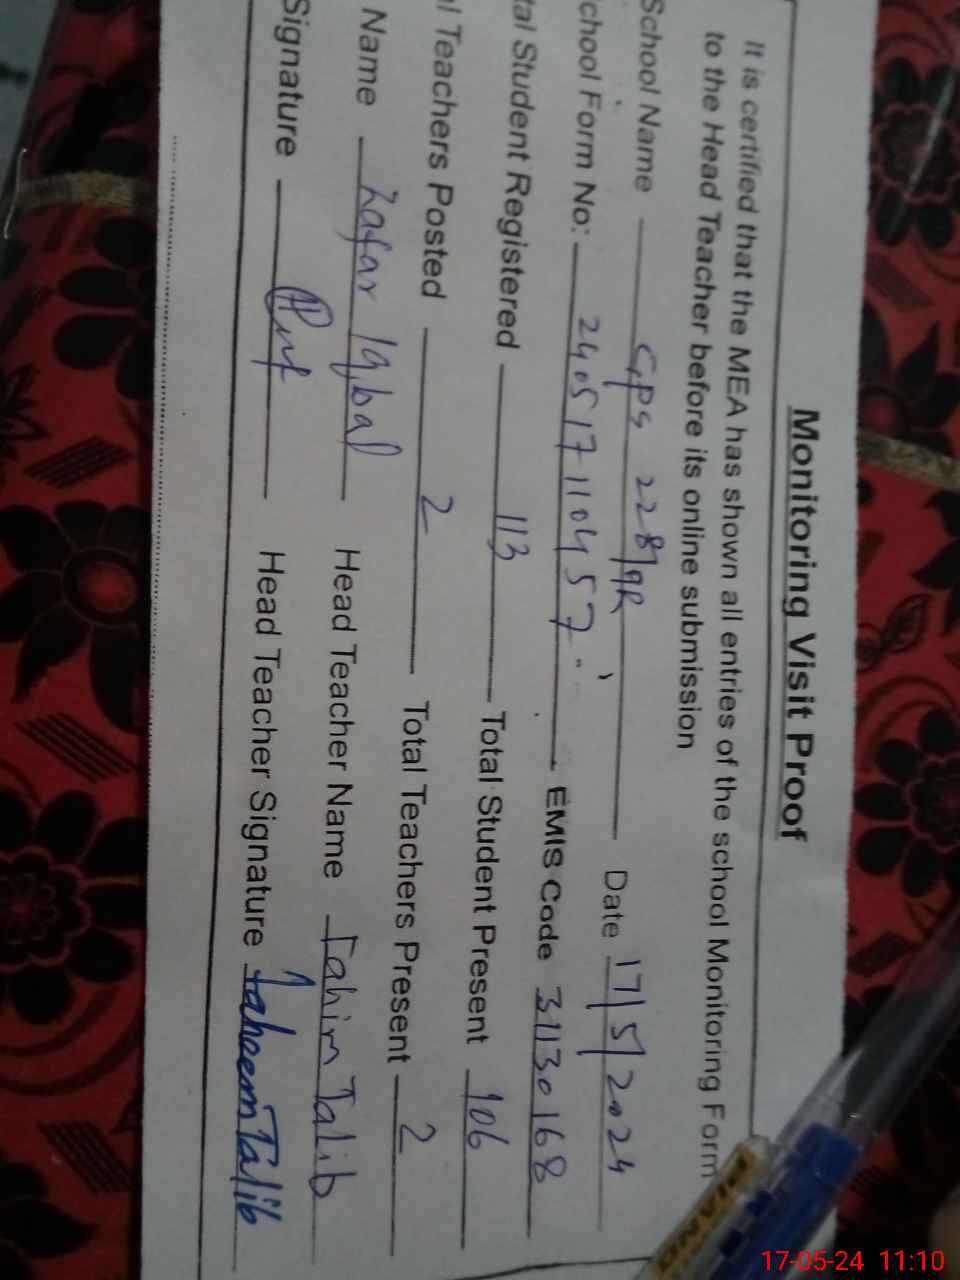 Monitoring Visit Proof
It is certified that the MEA has shown all entries of the school Monitoring Form
to the Head Teacher before its online submission
School Name GPS 228/9R Date 17/5/2024
chool Form No: 240517110457 EMIS Code 31130168
tal Student Registered 113 Total Student Present 106
al Teachers Posted 2 Total Teachers Present 2
Name Zafar Iqbal Head Teacher Name Fahim Talib
Signature Head Teacher Signature Faheem Talib
PIANO
17-05-24 11:10